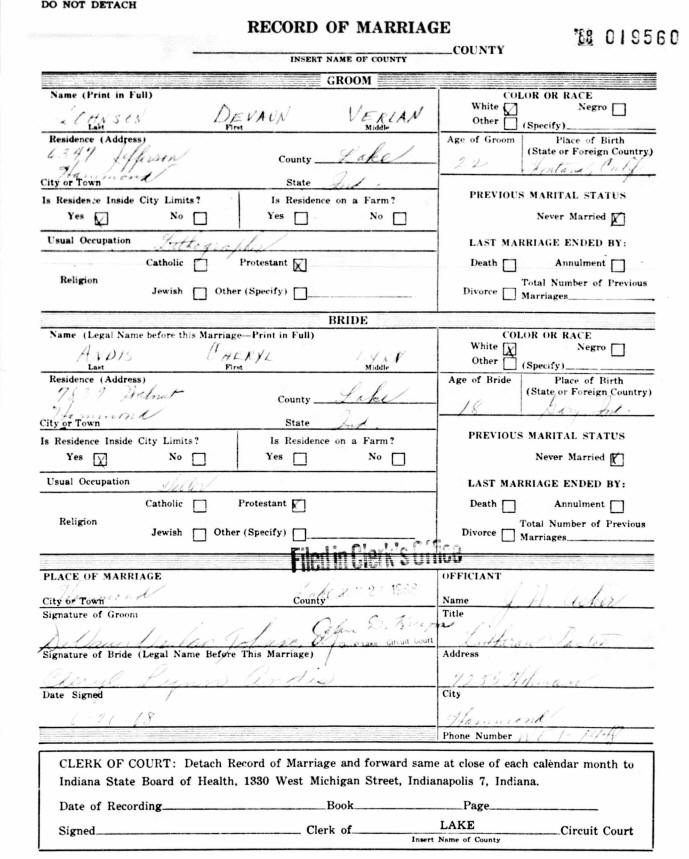 DO NOT DETACH
RECORD OF MARRIAGE
'68 019560
COUNTY
INSERT NAME OF COUNTY
GROOM
Name (Print in Full)
JOHNSON DEVAUN VERLAN
Last First Middle
COLOR OR RACE
White Negro
Other (Specify)
Residence (Address)
6347 Jefferson
Hammond
City or Town
County Lake
State Ind.
Age of Groom
22
Place of Birth
(State or Foreign Country)
Fontana, Calif
Is Residence Inside City Limits?
Yes No
Is Residence on a Farm?
Yes No
PREVIOUS MARITAL STATUS
Never Married
Usual Occupation Lithographer
Religion
Catholic Protestant X
Jewish Other (Specify)
LAST MARRIAGE ENDED BY:
Death Annulment
Divorce Total Number of Previous
Marriages
BRIDE
Name (Legal Name before this Marriage—Print in Full)
ANDIS CHERYL LYNN
Last First Middle
COLOR OR RACE
White X Negro
Other (Specify)
Residence (Address)
Walnut
Hammond
City or Town
County Lake
State Ind.
Age of Bride
18
Place of Birth
(State or Foreign Country)
Gary, Ind.
Is Residence Inside City Limits?
Yes X No
Is Residence on a Farm?
Yes No
PREVIOUS MARITAL STATUS
Never Married
Usual Occupation
Religion
Catholic Protestant
Jewish Other (Specify)
LAST MARRIAGE ENDED BY:
Death Annulment
Divorce Total Number of Previous
Marriages
Filed in Clerk's Office
PLACE OF MARRIAGE
Hammond
City or Town
County Lake
1968
Circuit Court
Signature of Groom
Signature of Bride (Legal Name Before This Marriage)
Cheryl Lynn Andis
Date Signed
OFFICIANT
Name
Title
Lutheran Pastor
Address
City
Hammond
Phone Number
CLERK OF COURT: Detach Record of Marriage and forward same at close of each calendar month to
Indiana State Board of Health, 1330 West Michigan Street, Indianapolis 7, Indiana.
Date of Recording Book Page
Signed Clerk of LAKE Circuit Court
Insert Name of County